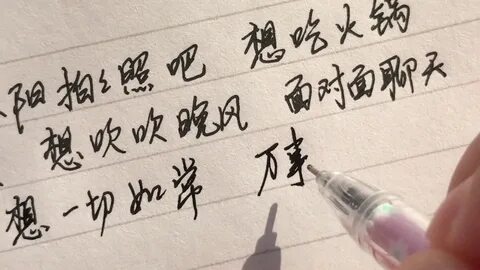 阳拍々照吧 想吃火锅
想吹吹晚风 面对面聊天
想一切如常 万事